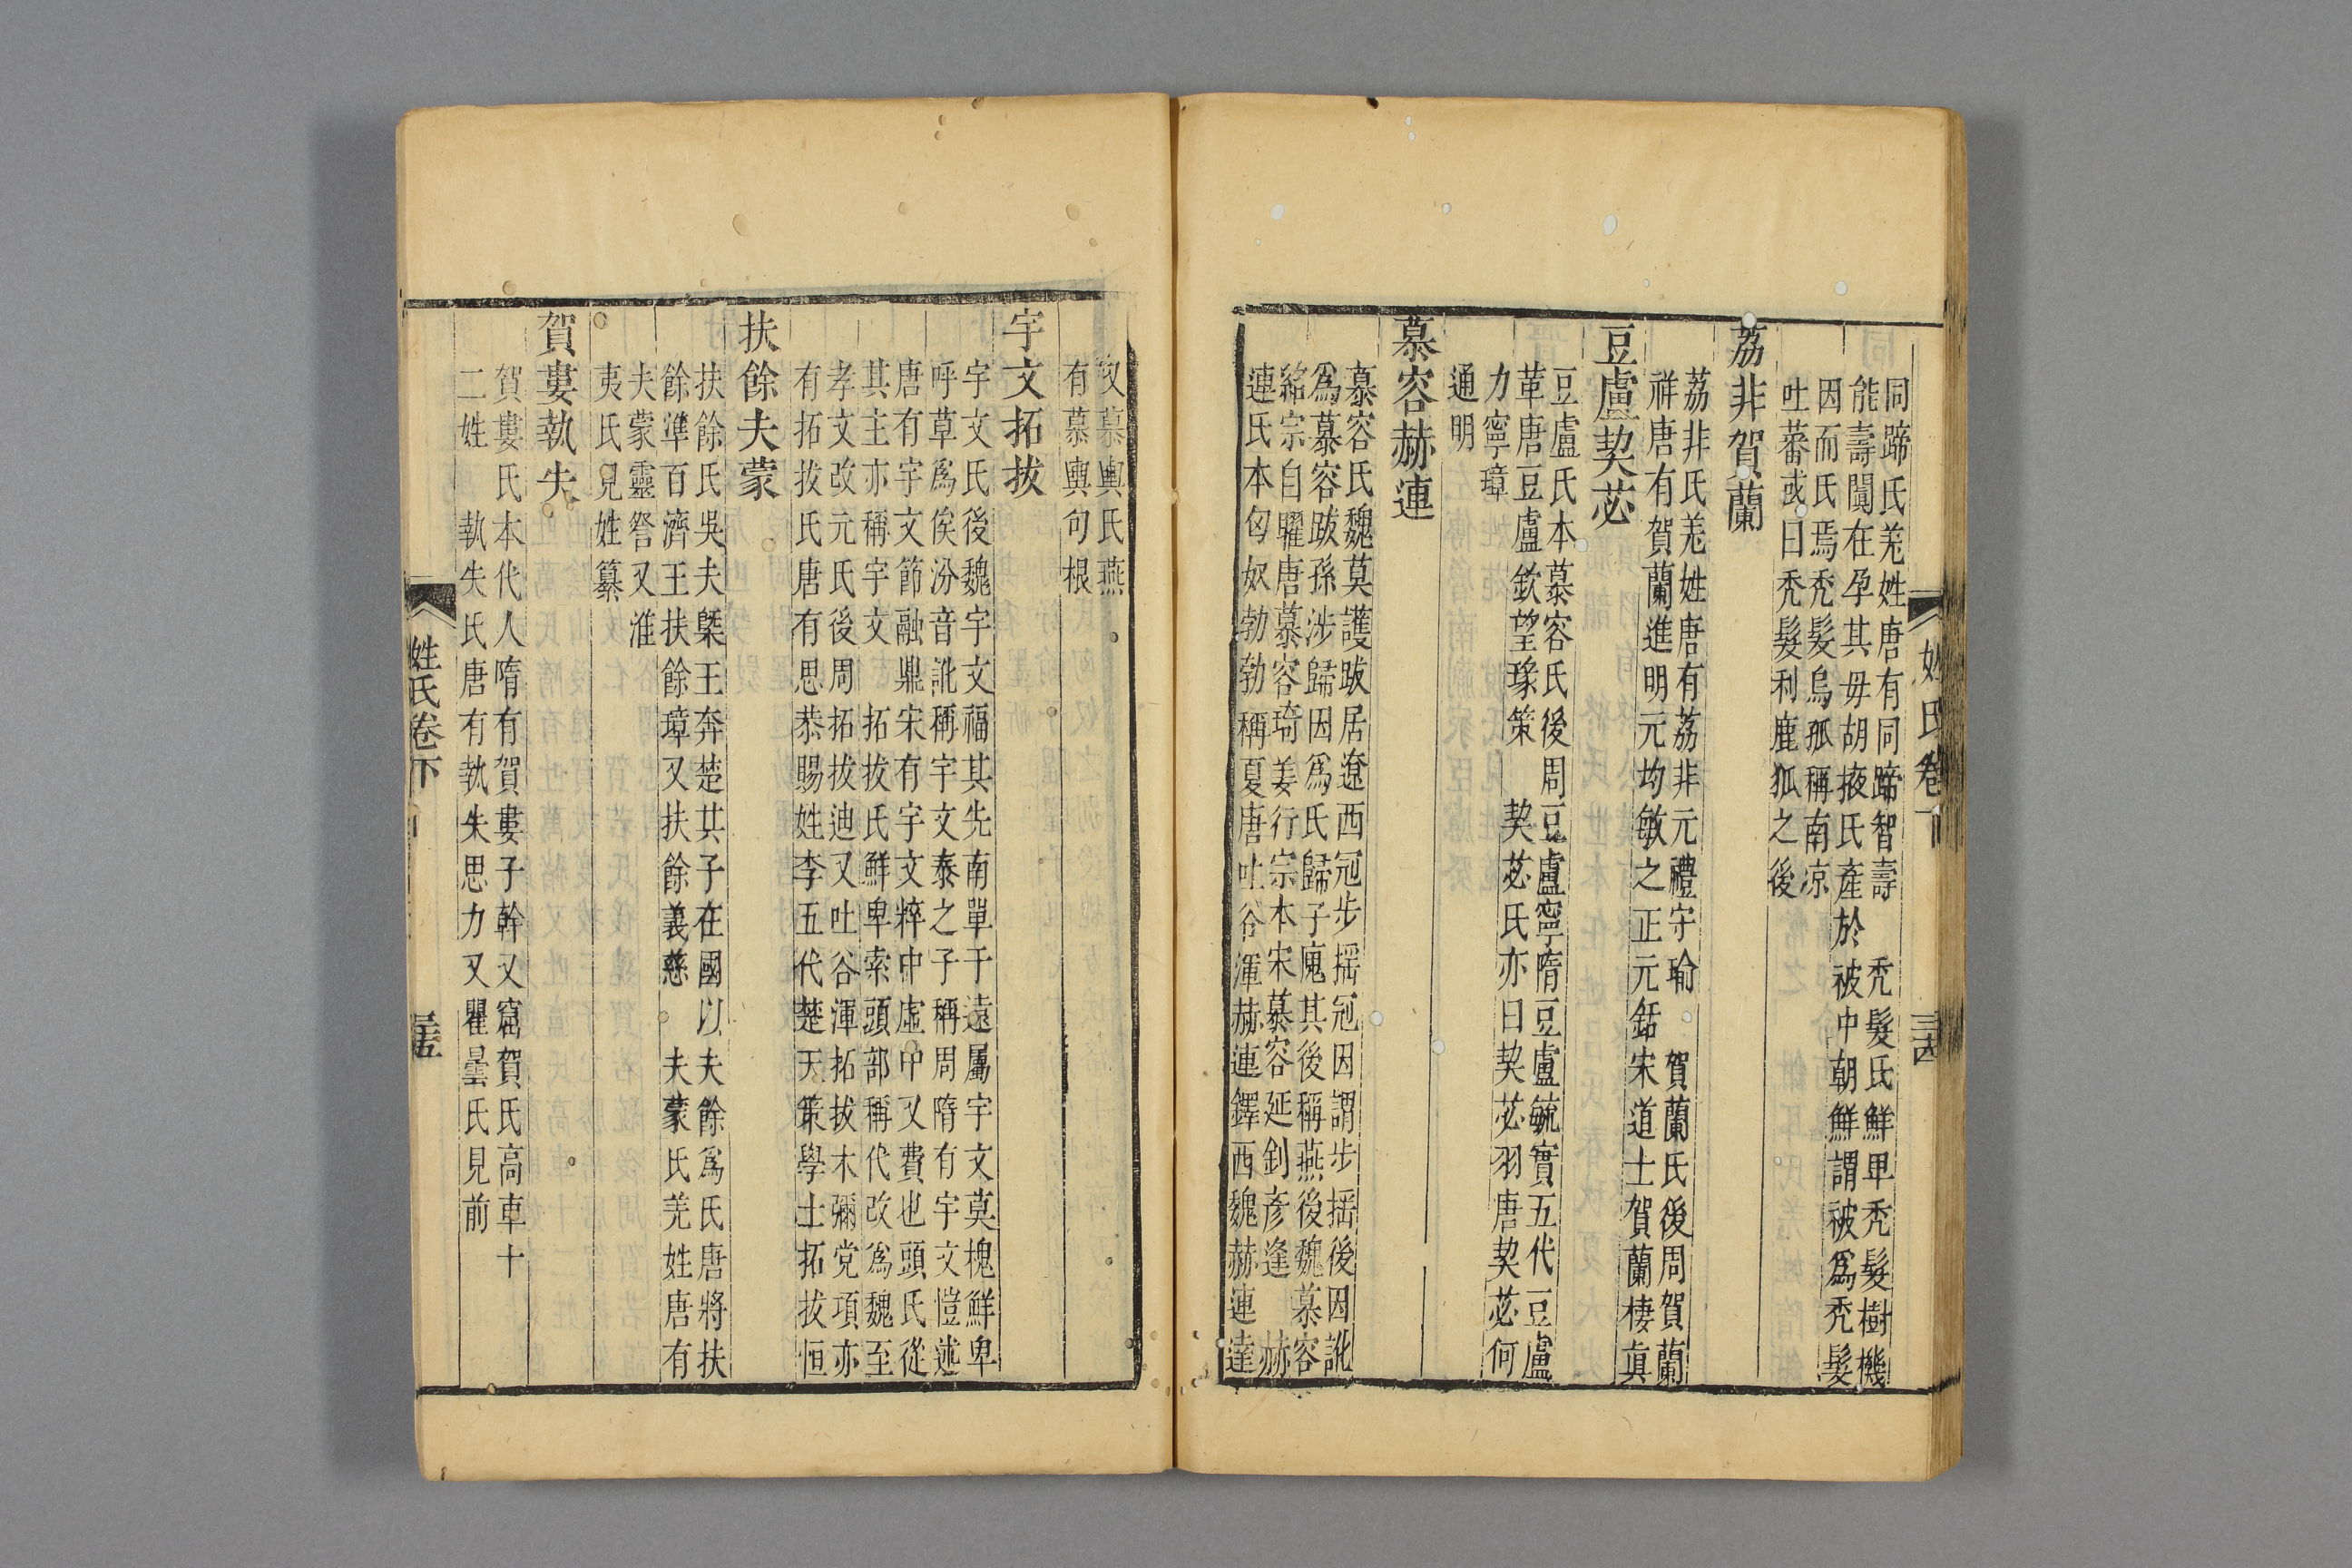 同蹄氏羌姓唐有同蹄智壽　秃髮氏鮮卑秃髮樹機
能壽闐在孕其毋胡掖氏產於被中朝鮮謂被爲秃髮
因而氏焉秃髮烏孤稱南凉
吐蕃或曰秃髮利鹿狐之後
荔非賀蘭
荔非氏羌姓唐有荔非元禮守瑜　賀蘭氏後周賀蘭
祥唐有賀蘭進明元均敏之正元銛宋道士賀蘭棲真
豆盧契苾
豆盧氏本慕容氏後周豆盧寧隋豆盧毓實五代豆盧
革唐豆盧欽望瑑策　契苾氏亦曰契苾羽唐契苾何
力寧璋
通明
慕容赫連
慕容氏魏莫護跋居遼西冠步摇冠因謂步摇後因訛
爲慕容跋孫涉歸因爲氏歸子廆其後稱燕後魏慕容
紹宗自曜唐慕容琦姜行宗本宋慕容延釗彥逢　赫
連氏本匈奴勃勃稱夏唐吐谷渾赫連鐸西魏赫連達
姓氏卷下
三十四
又慕輿氏燕
有慕輿句根
宇文拓拔
宇文氏後魏宇文福其先南單于遠屬宇文莫槐鮮卑
呼草爲俟汾音訛稱宇文泰之子稱周隋有宇文愷述
唐有宇文節融鼎宋有宇文粹中虛中又費也頭氏從
其主亦稱宇文　拓拔氏鮮卑索頭部稱代改爲魏至
孝文改元氏後周拓拔迪又吐谷渾拓拔木彌党項亦
有拓拔氏唐有思恭賜姓李五代楚天策學士拓拔恒
扶餘夫蒙
扶餘氏吳夫槩王奔楚其子在國以夫餘爲氏唐將扶
餘準百濟王扶餘璋又扶餘義慈　夫蒙氏羌姓唐有
夫蒙靈詧又淮
夷氏見姓纂
賀婁執失
賀婁氏本代人隋有賀婁子幹又窟賀氏高車十
二姓　執失氏唐有執失思力又瞿曇氏見前
姓氏卷下
三十五